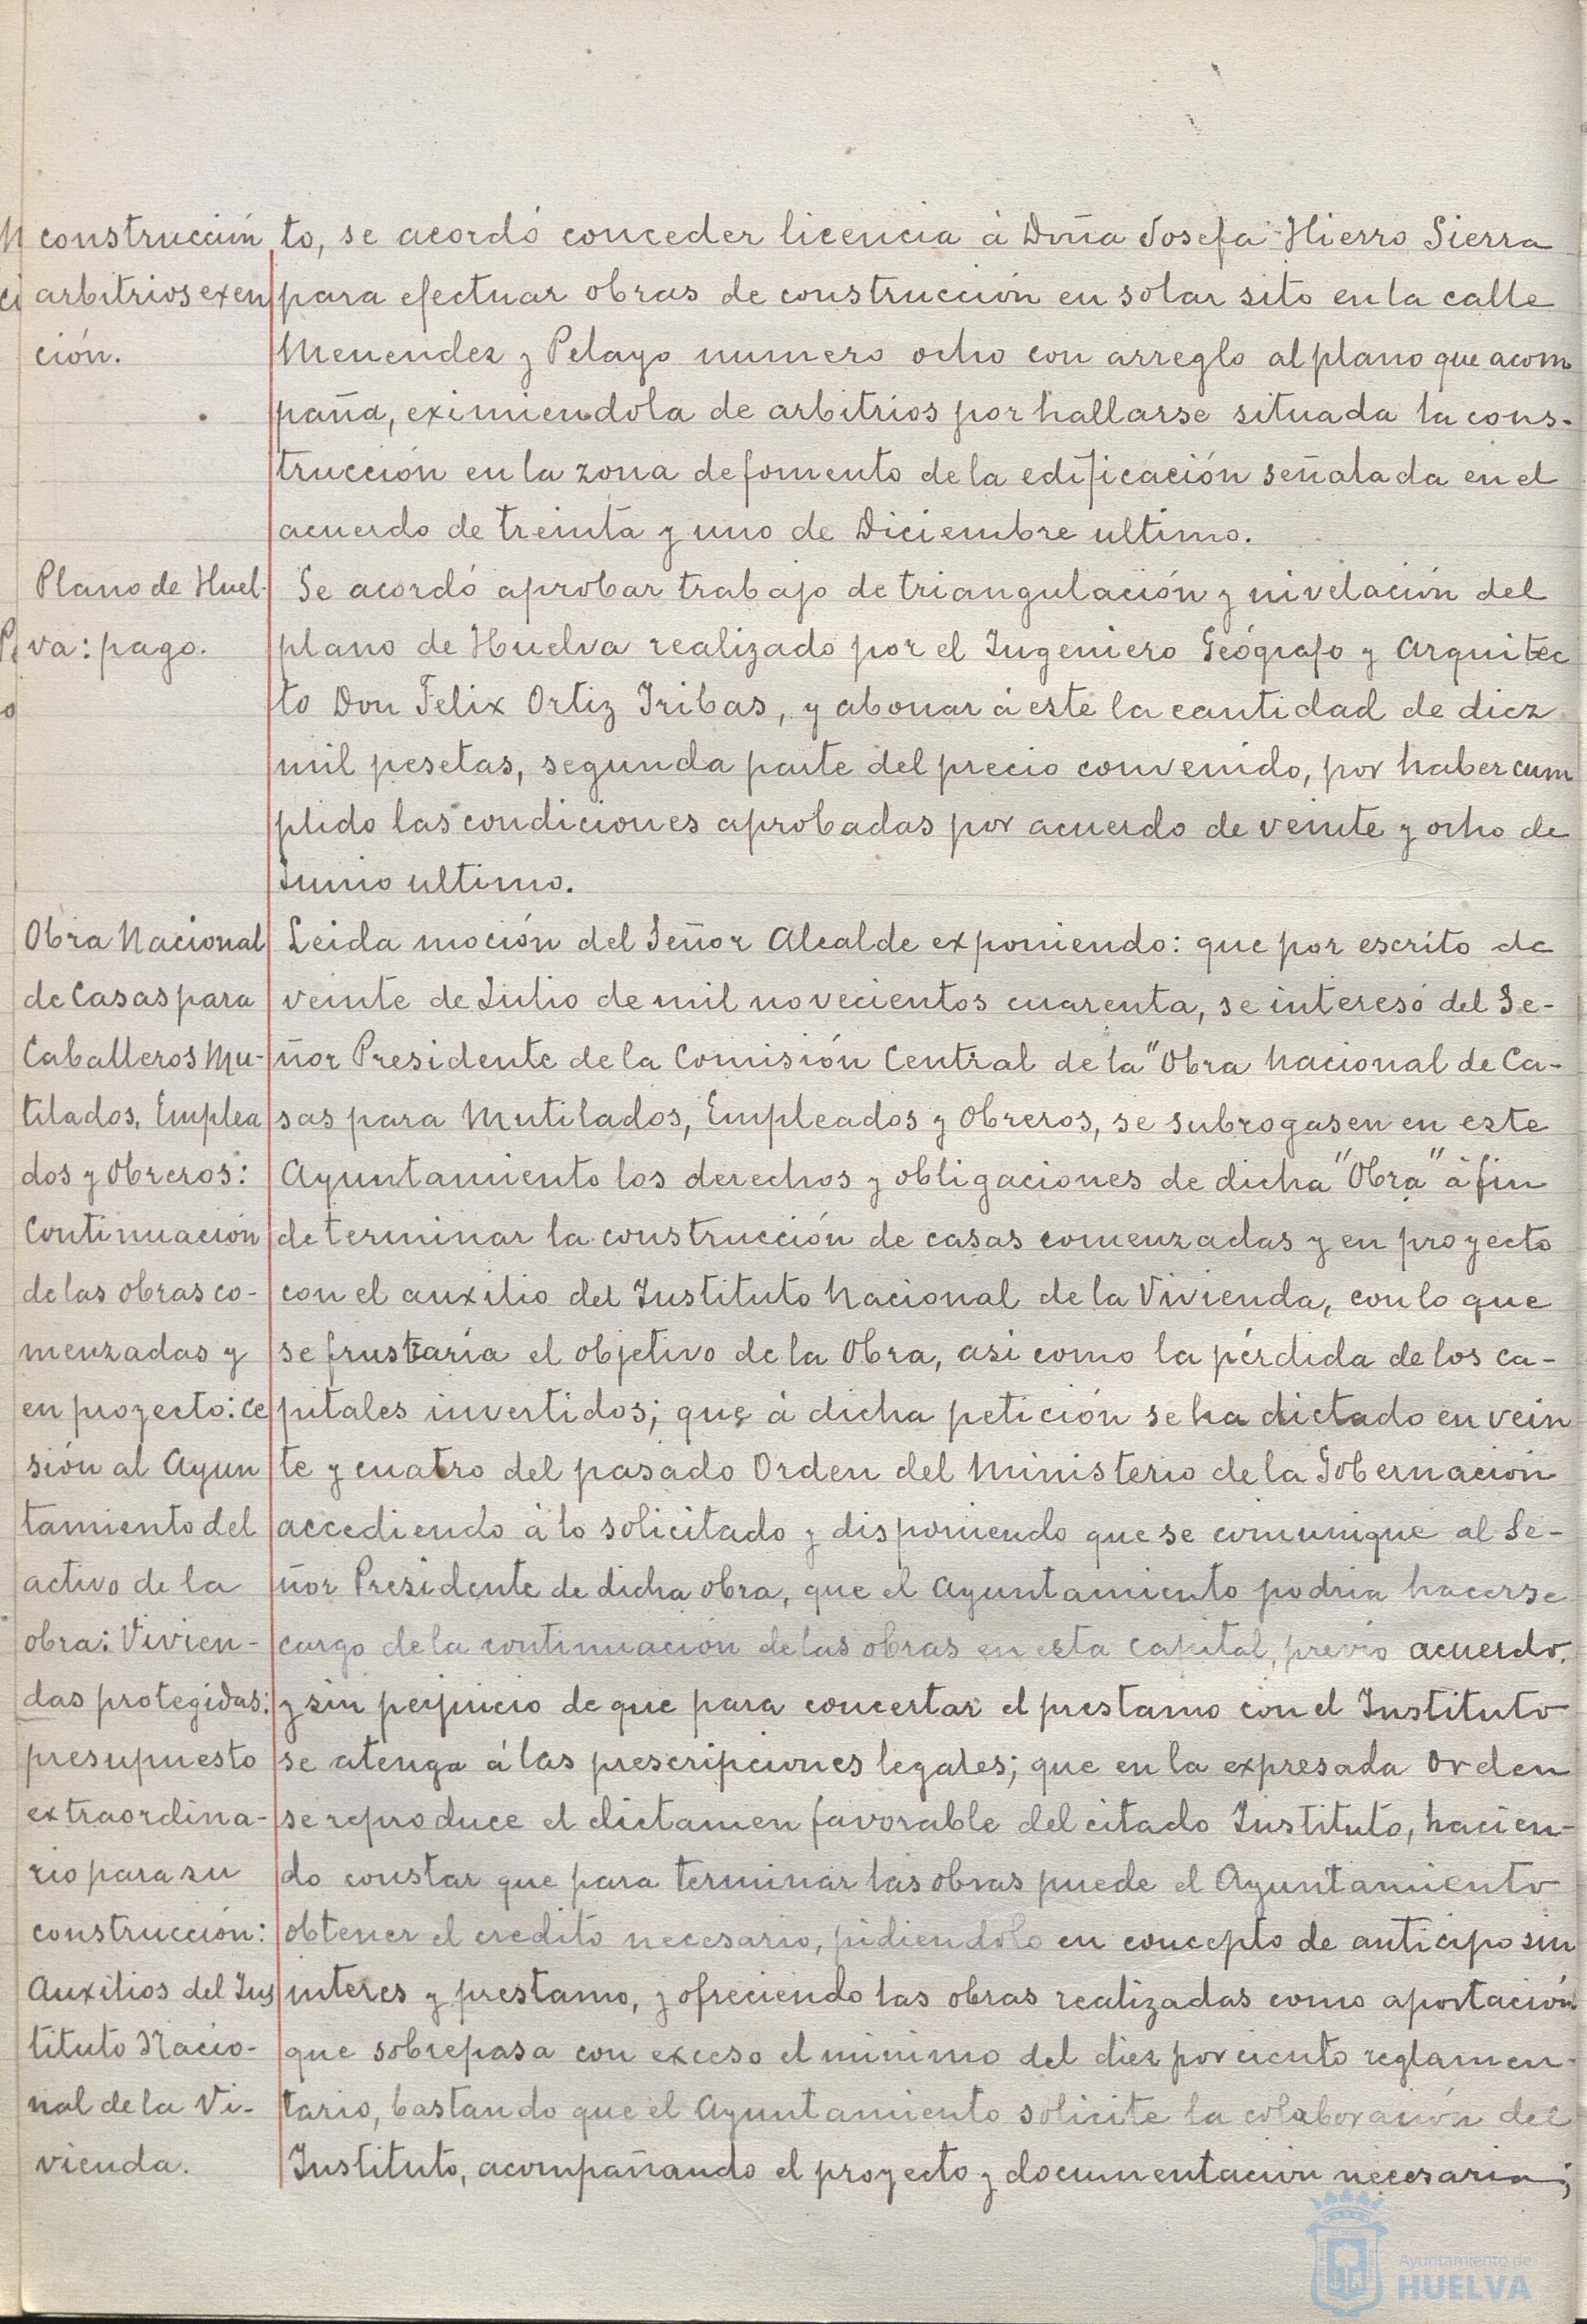 construcción
arbitrios exen
ción.
to, se acordó conceder licencia á Doña Josefa Hierro Sierra
para efectuar obras de construcción en solar sito en la calle
Menendez y Pelayo numero ocho con arreglo al plano que acom
paña, eximiendola de arbitrios por hallarse situada la cons-
trucción en la zona de fomento de la edificación señalada en el
acuerdo de treinta y uno de Diciembre ultimo.
Plano de Huel-
va: pago.
Se acordó aprobar trabajo de triangulación y nivelación del
plano de Huelva realizado por el Ingeniero Geógrafo y Arquitec
to Don Felix Ortiz Iribas, y abonar á este la cantidad de diez
mil pesetas, segunda parte del precio convenido, por haber cum
plido las condiciones aprobadas por acuerdo de veinte y ocho de
Junio ultimo.
Obra Nacional
de Casas para
Caballeros Mu-
tilados, Emplea
dos y Obreros:
Continuación
de las obras co-
menzadas y
en proyecto: ce
sión al Ayun
tamiento del
activo de la
obra: Vivien-
das protegidas:
presupuesto
extraordina-
rio para su
construcción:
Auxilios del Ins
tituto Nacio-
nal de la Vi-
vienda.
Leida moción del Señor Alcalde exponiendo: que por escrito de
veinte de Julio de mil novecientos cuarenta, se interesó del Se-
ñor Presidente de la Comisión Central de la "Obra Nacional de Ca-
sas para Mutilados, Empleados y Obreros, se subrogasen en este
Ayuntamiento los derechos y obligaciones de dicha "Obra" á fin
de terminar la construcción de casas comenzadas y en proyecto
con el auxilio del Instituto Nacional de la Vivienda, con lo que
se frustraría el objetivo de la Obra, asi como la pérdida de los ca-
pitales invertidos; que á dicha petición se ha dictado en vein
te y cuatro del pasado Orden del Ministerio de la Gobernación
accediendo á lo solicitado y disponiendo que se comunique al Se-
ñor Presidente de dicha obra, que el Ayuntamiento podria hacerse
cargo de la continuación de las obras en esta Capital, previo acuerdo,
y sin perjuicio de que para concertar el prestamo con el Instituto
se atenga á las prescripciones legales; que en la expresada Orden
se reproduce el dictamen favorable del citado Instituto, hacien-
do constar que para terminar las obras puede el Ayuntamiento
obtener el credito necesario, pidiendolo en concepto de anticipo sin
interes y prestamo, y ofreciendo las obras realizadas como aportación
que sobrepasa con exceso el minimo del diez por ciento reglamen-
tario, bastando que el Ayuntamiento solicite la colaboración del
Instituto, acompañando el proyecto y documentación necesaria;
Ayuntamiento de
HUELVA